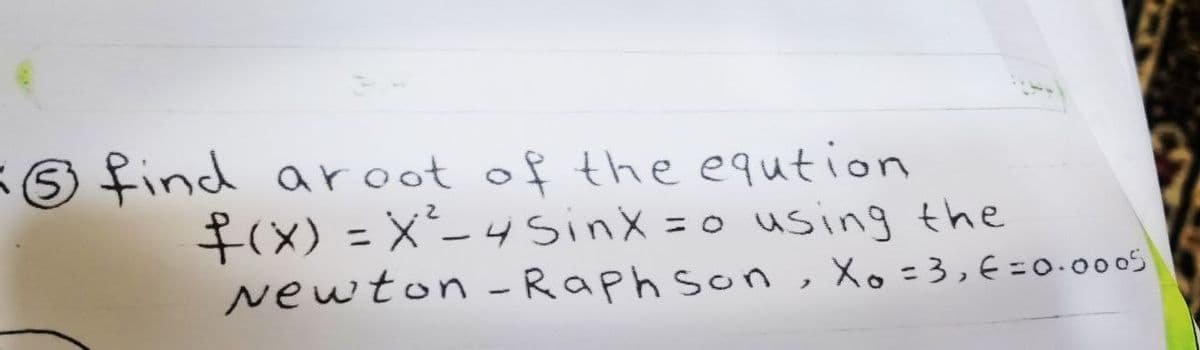 ⑤ find aroot of the eqution
f(x) = x² - 4 sinx = 0 using the
Newton - Raphson , X₀ = 3, ϵ = 0.0005